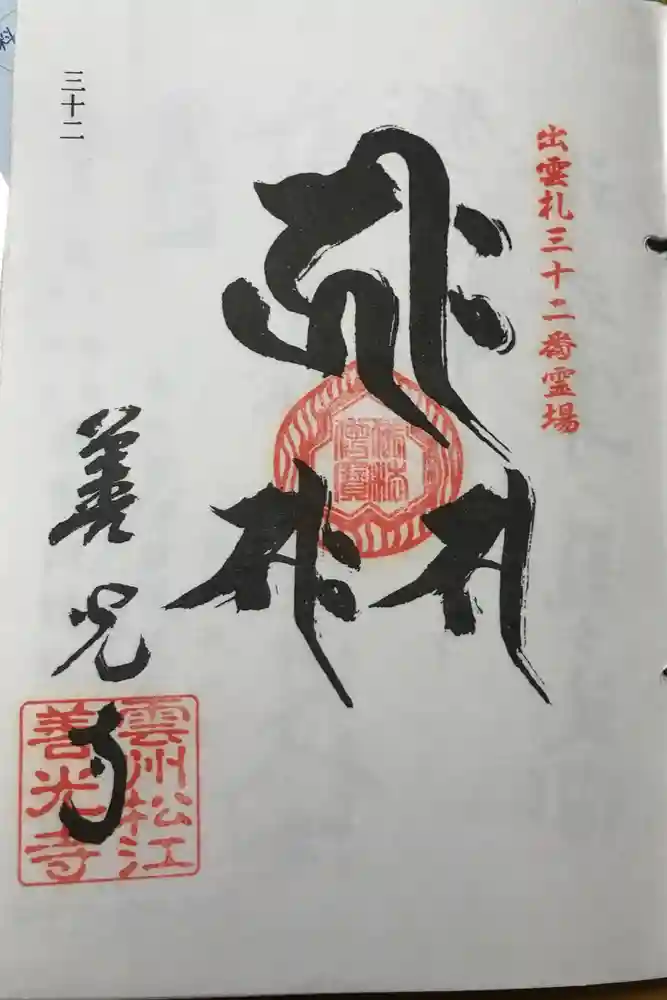 出雲札三十二番霊場
𑖮𑖿𑖨𑖱𑖾
𑖭
𑖭𑖾
佛法
僧寶
三十二
善光寺
雲州松江
善光寺